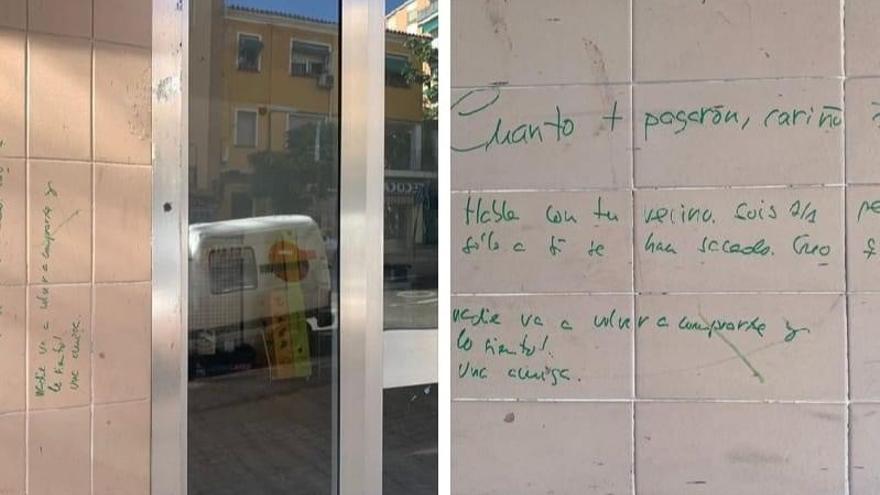 nadie va a volver a comprarte y
lo siento!
una amiga.
Cuanto + pagarón, cariño
Habla con tu vecino. Sois
sólo a ti te han sacado. Creo
nadie va a volver a comprarte y
lo siento!
Una amiga.